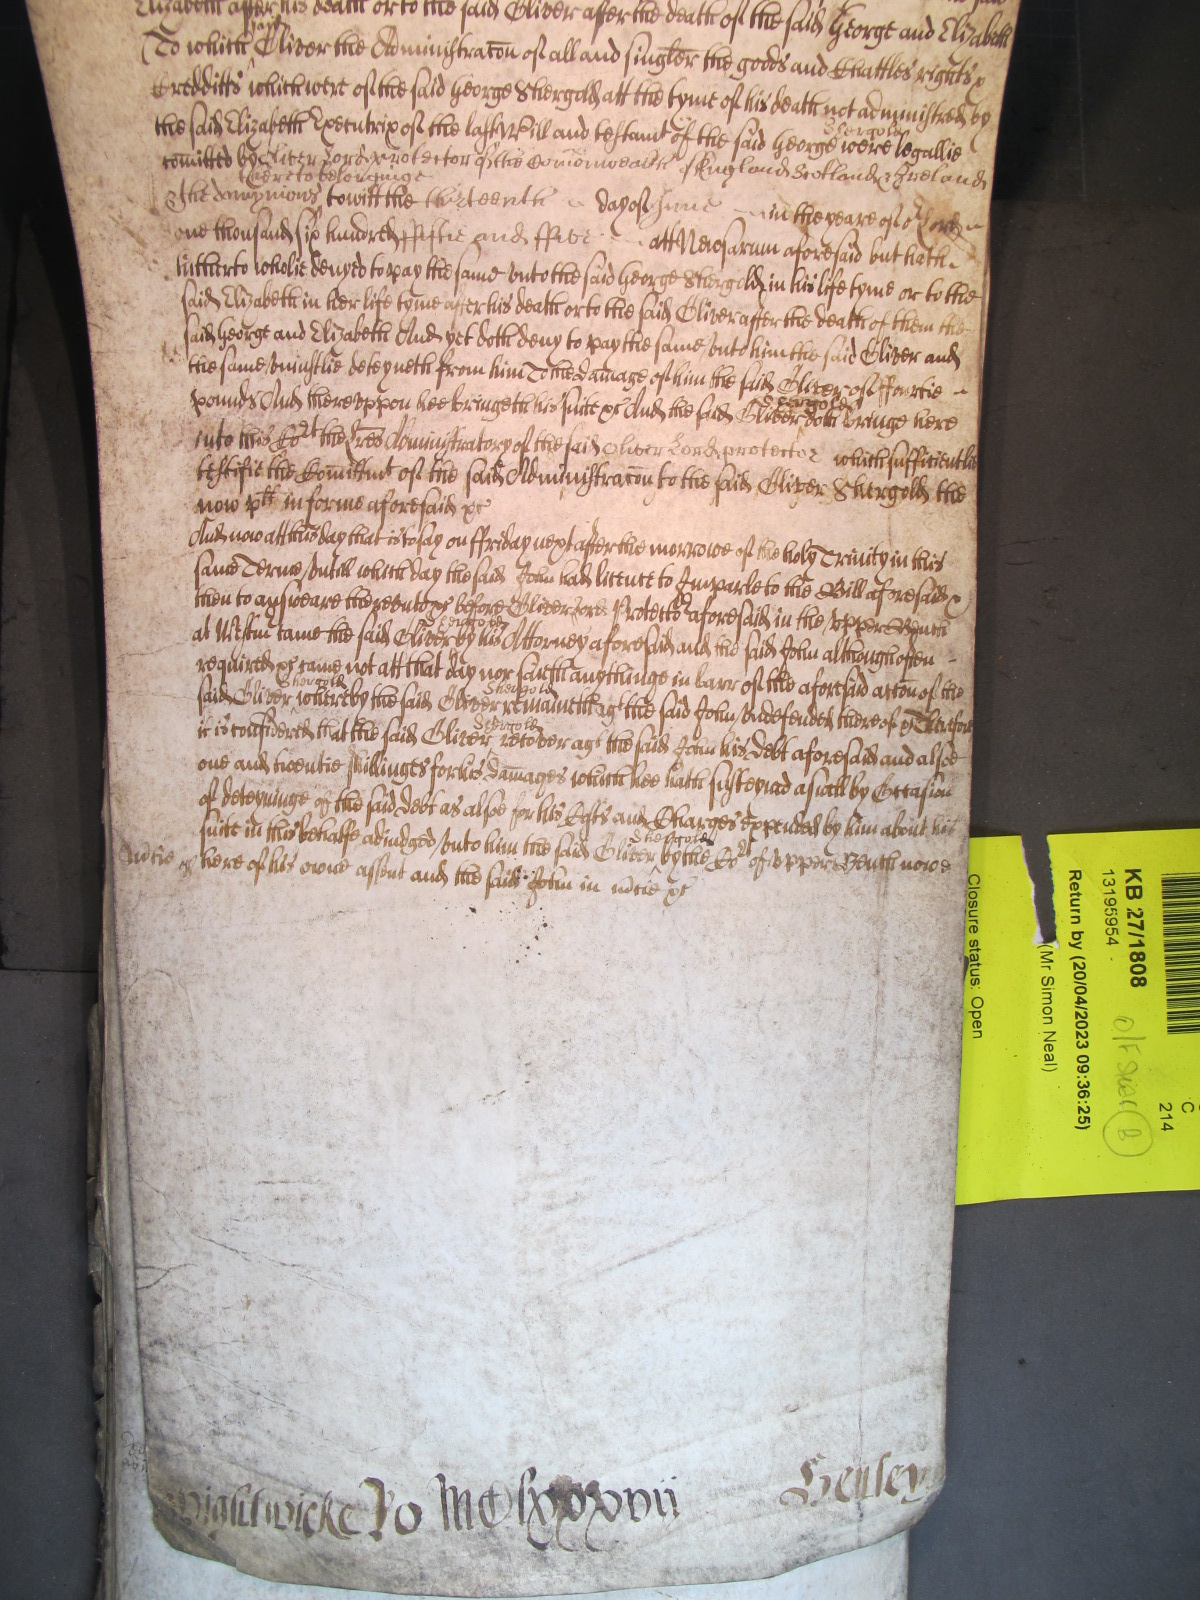 Elizabeth after his death or to the said Oliver after the death of the said George and Elizabeth
To which said Oliver the Administracon of all and singler the goods and Chattles rights &
Credditts which were of the said George Shergold att the tyme of his death not administred by
the said Elizabeth Executrix of the last Will and testamt of the said George Shergold were legallie
comitted by Oliver Lord Protector of the Comonwealth of England Scotland & Ireland
thereto belonginge
the towitt the thirteenth day of June in the yeare of or Lord
one thousand six hundred fiftie and ffive att New Sarum aforesaid but hath
hitherto wholie denyed to pay the same unto the said George Shergold in his life tyme or to the
said Elizabeth in her life tyme after his death or to the said Oliver after the death of them the
said George and Elizabeth And yet doth deny to pay the same unto him the said Oliver and
the same uniustlie deteyneth from him To the damage of him the said Oliver of ffortie
pounds And thereuppon hee bringeth his suite &c And the said Oliver Shergold doth bringe here
into this Cort the lres Administratory of the said Oliver Lord protector which sufficientlie
testifie the Comittmt of the said Administracon to the said Oliver Shergold the
now plt in forme aforesaid &c
And now att this day that is to say on ffriday next after the morrowe of the holy Trinity in this
same Terme untill which day the said John had licence to Imparle to the Bill aforesaid &
then to answeare thereunto &c before Oliver Lord Protector aforesaid in the upper Bench
at Westm came the said Oliver Shergold by his Attorney aforesaid and the said John although often
required &c came not att that day nor saith anythinge in barr of the aforesaid accon of the
said Oliver Shergold whereby the said Oliver Shergold remaineth agt the said John undefended thereof &c Therefore
it is considered that the said Oliver Shergold recover agt the said John his debt aforesaid and alsoe
one and twentie shillinges for his damages which hee hath susteyned aswell by Occasion
of deteyninge of the said debt as alsoe for his Costs and Charges expended by him about his
suite in this behalfe adiudged unto him the said Oliver Shergold by the Cort of upper Bench nowe
mcie
here of his owne assent and the said John in mcie &c
wightwicke Ro MClxxxvii
Henley
KB 27/1808
13195954
Return by (20/04/2023 09:36:25)
(Mr Simon Neal)
Closure status: Open
C
214